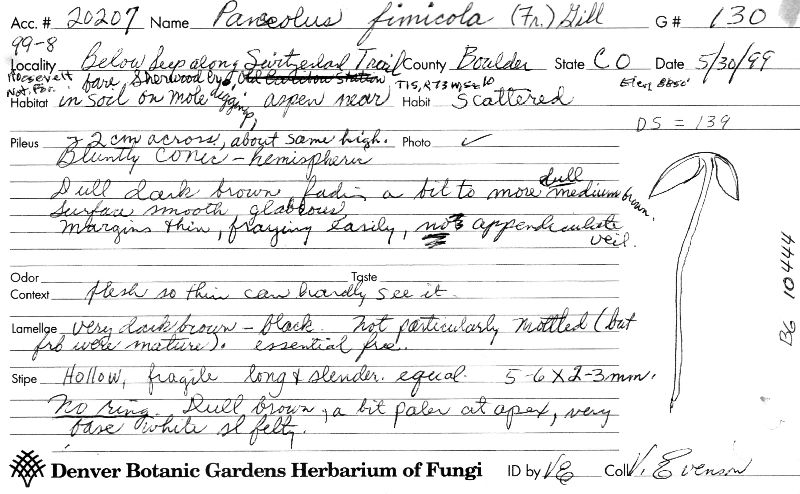 Acc. # 20207 Name Paneolus fimicola (Fr.) Gill G# 130
99-8
Locality Below Jeep along Switzerland Trail County Boulder State CO Date 5/30/99
Roosevelt Nat. For. bare Sherwood T1S, R73W, S10 Elev 8850'
Habitat in soil on mole diggings, aspen near Habit Scattered
DS = 139
Pileus 2 cm across, about same high. Photo ✓
Bluntly conic - hemispheric
Dull dark brown fading a bit to more dull medium brown.
Surface smooth glabrous
Margins thin, fraying easily, not appendiculate
veil.
Odor Taste
Context flesh so thin can hardly see it.
Lamellae very dark brown - black. Not particularly mottled (but
frb were mature). essential free.
Stipe Hollow, fragile long & slender. equal. 5-6 X 2-3 mm.
No ring. Dull brown, a bit paler at apex, very
base white sl felty.
Denver Botanic Gardens Herbarium of Fungi ID by VE Coll V. Evenson
BG 10444